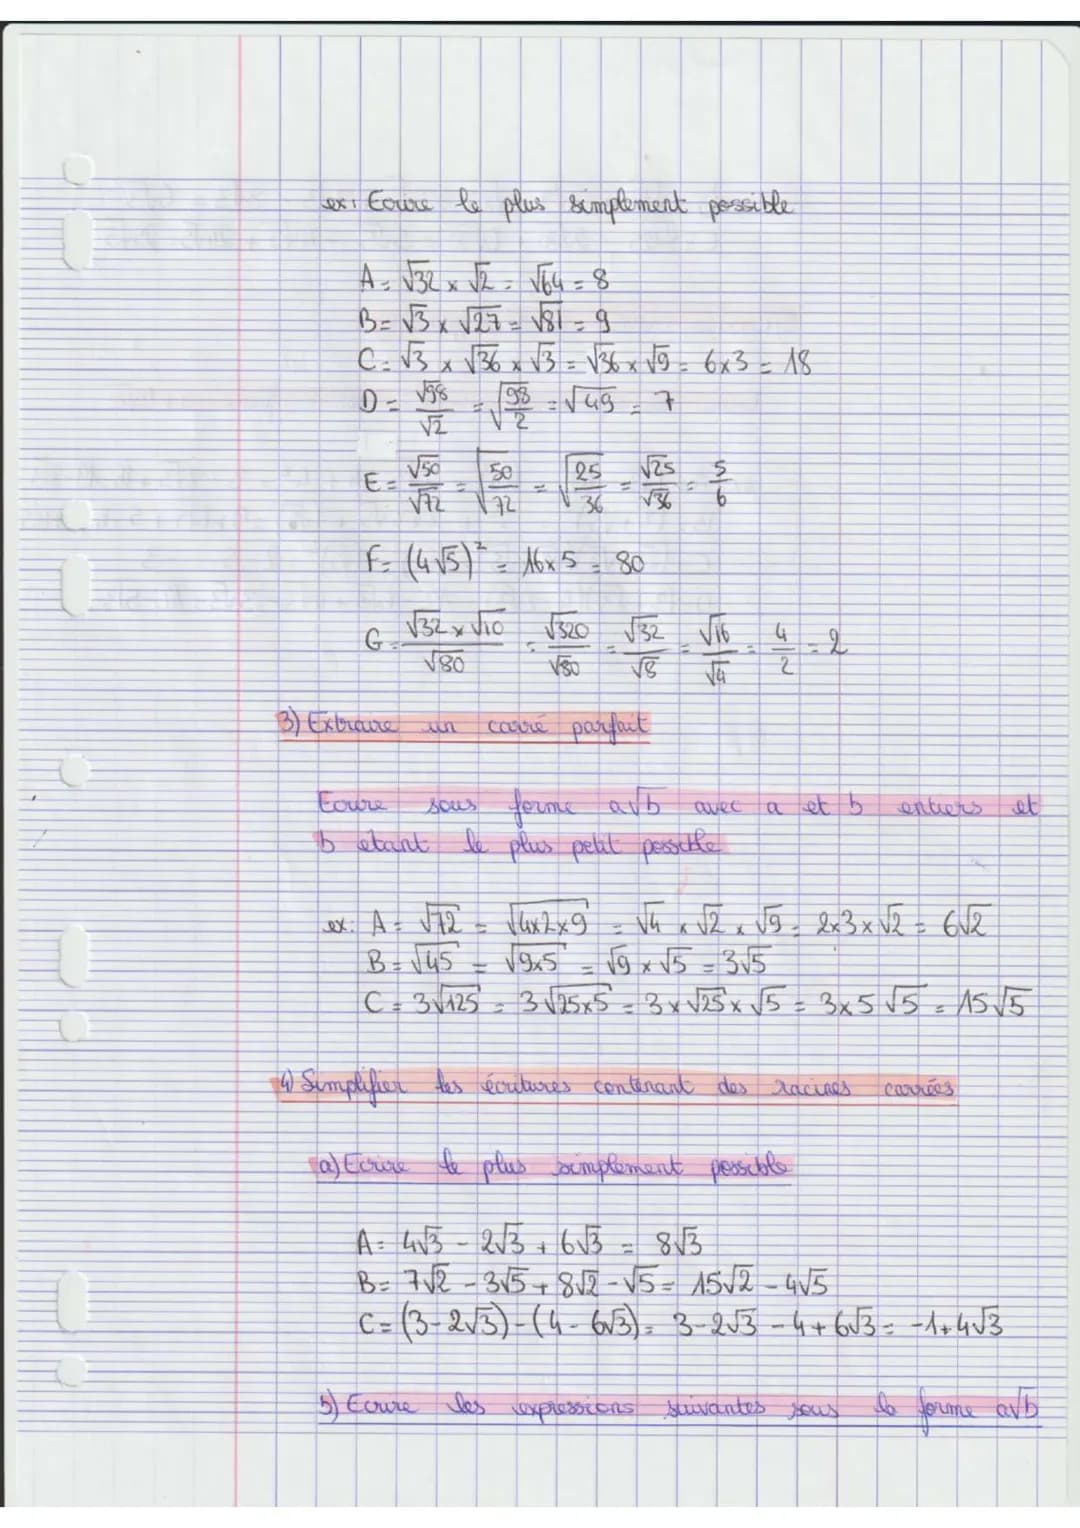 ex: Ecrire le plus simplement possible
A = √32 × √2 = √64 = 8
B = √3 × √27 = √81 = 9
C = √3 × √36 × √3 = √36 × √9 = 6×3 = 18
D = √98/√2 = √(98/2) = √49 = 7
E = √50/√72 = √(50/72) = √(25/36) = √25/√36 = 5/6
F = (4√5)² = 16×5 = 80
G = (√32 × √10)/√80 = √320/√80 = √32/√8 = √16/√4 = 4/2 = 2
3) Extraire un carré parfait
Ecrire sous forme a√b avec a et b entiers et
b etant le plus petit possible
ex: A = √72 = √(4×2×9) = √4 × √2 × √9 = 2×3×√2 = 6√2
B = √45 = √(9×5) = √9 × √5 = 3√5
C = 3√125 = 3√(25×5) = 3 × √25 × √5 = 3×5√5 = 15√5
4) Simplifier les écritures contenant des racines carrées
a) Ecrire le plus simplement possible
A = 4√3 - 2√3 + 6√3 = 8√3
B = 7√2 - 3√5 + 8√2 - √5 = 15√2 - 4√5
C = (3 - 2√3) - (4 - 6√3) = 3 - 2√3 - 4 + 6√3 = -1 + 4√3
b) Ecrire les expressions suivantes sous la forme a√b